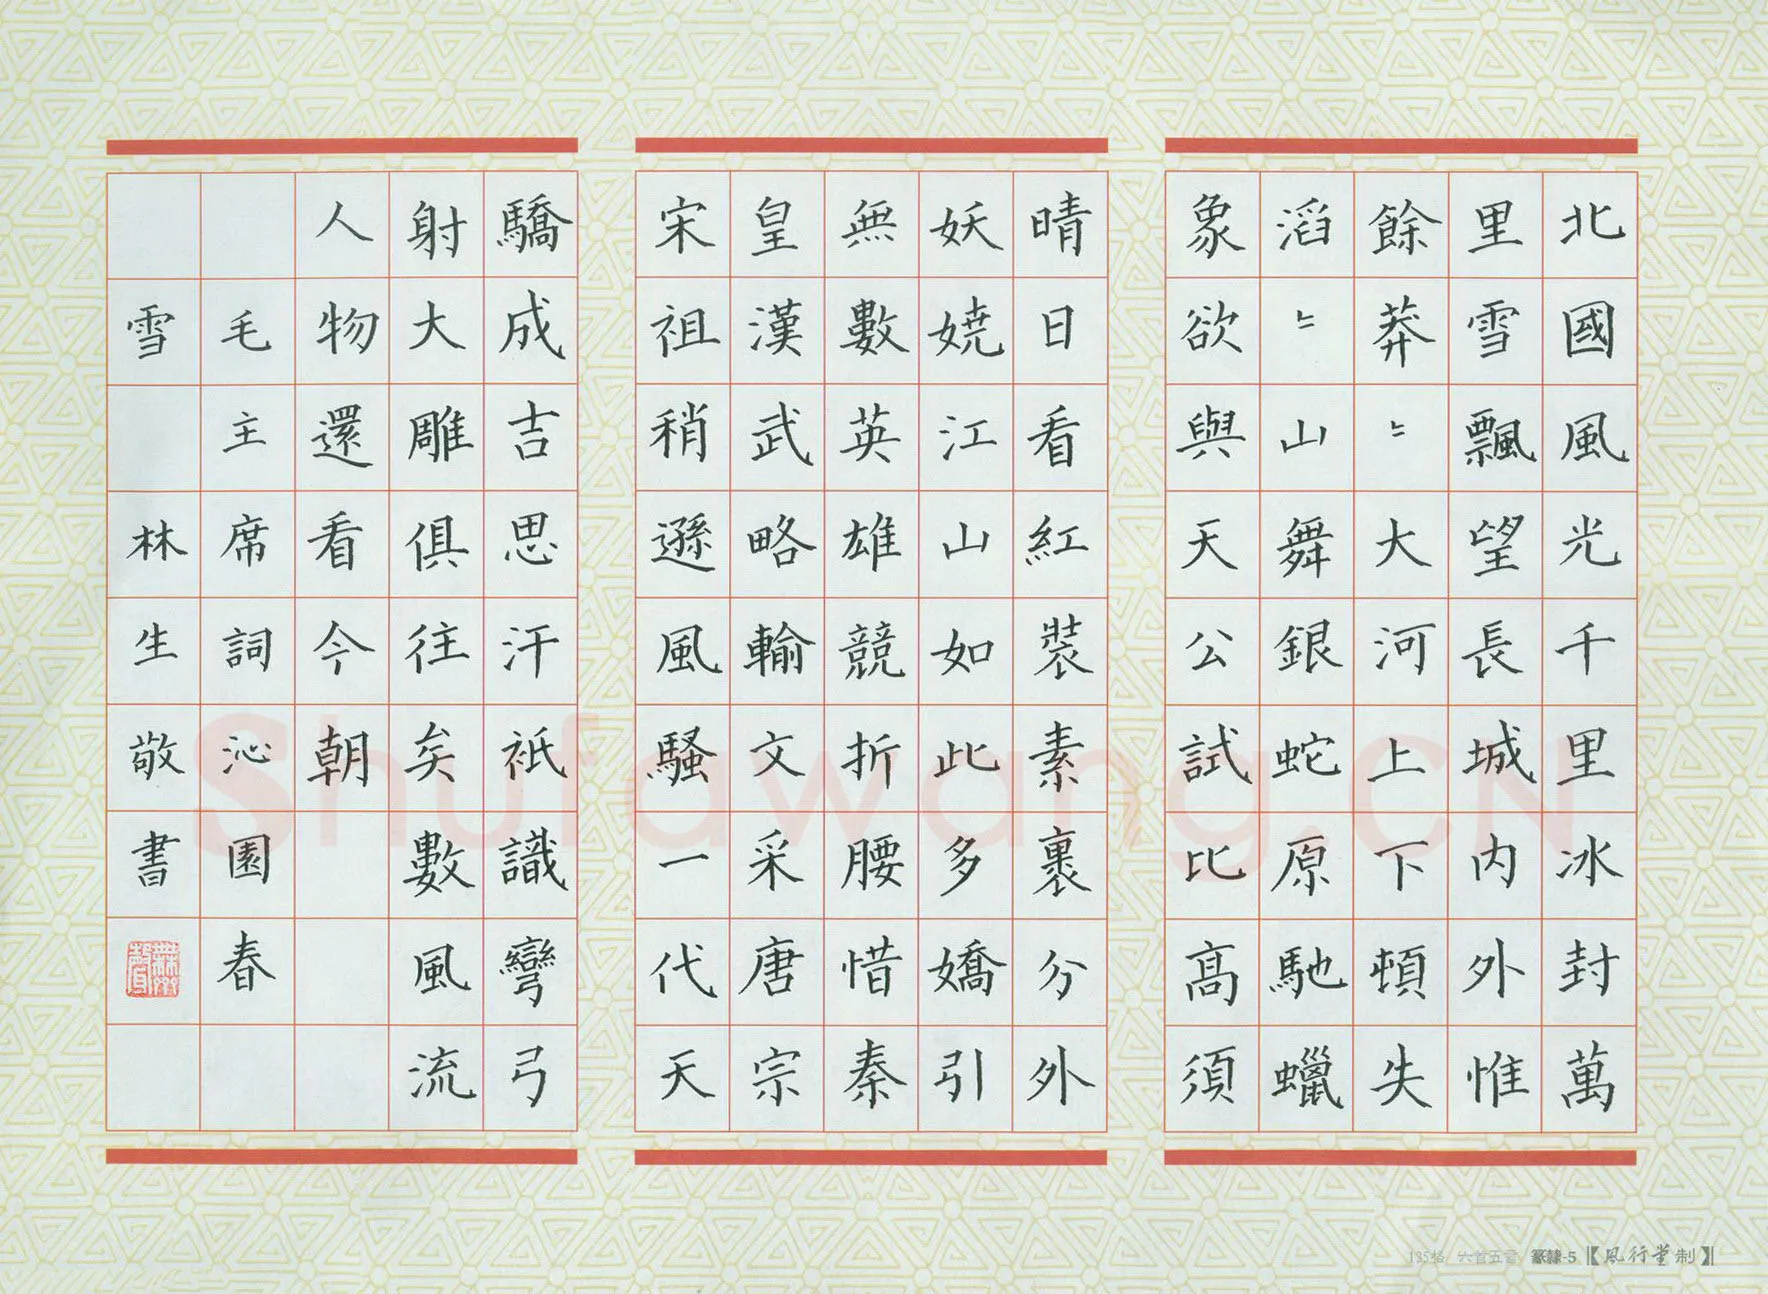 北國風光千里冰封萬
里雪飄望長城内外惟
餘莽〻大河上下頓失
滔〻山舞銀蛇原馳蠟
象欲與天公試比高須
晴日看紅裝素裹分外
妖娆江山如此多嬌引
無數英雄競折腰惜秦
皇漢武略輸文采唐宗
宋祖稍遜風騷一代天
驕成吉思汗祇識彎弓
射大雕俱往矣數風流
人物還看今朝
毛主席詞沁園春
雪 林生敬書
Shufawang.CN
135格 六首五言 篆隸-5 【風行堂制】